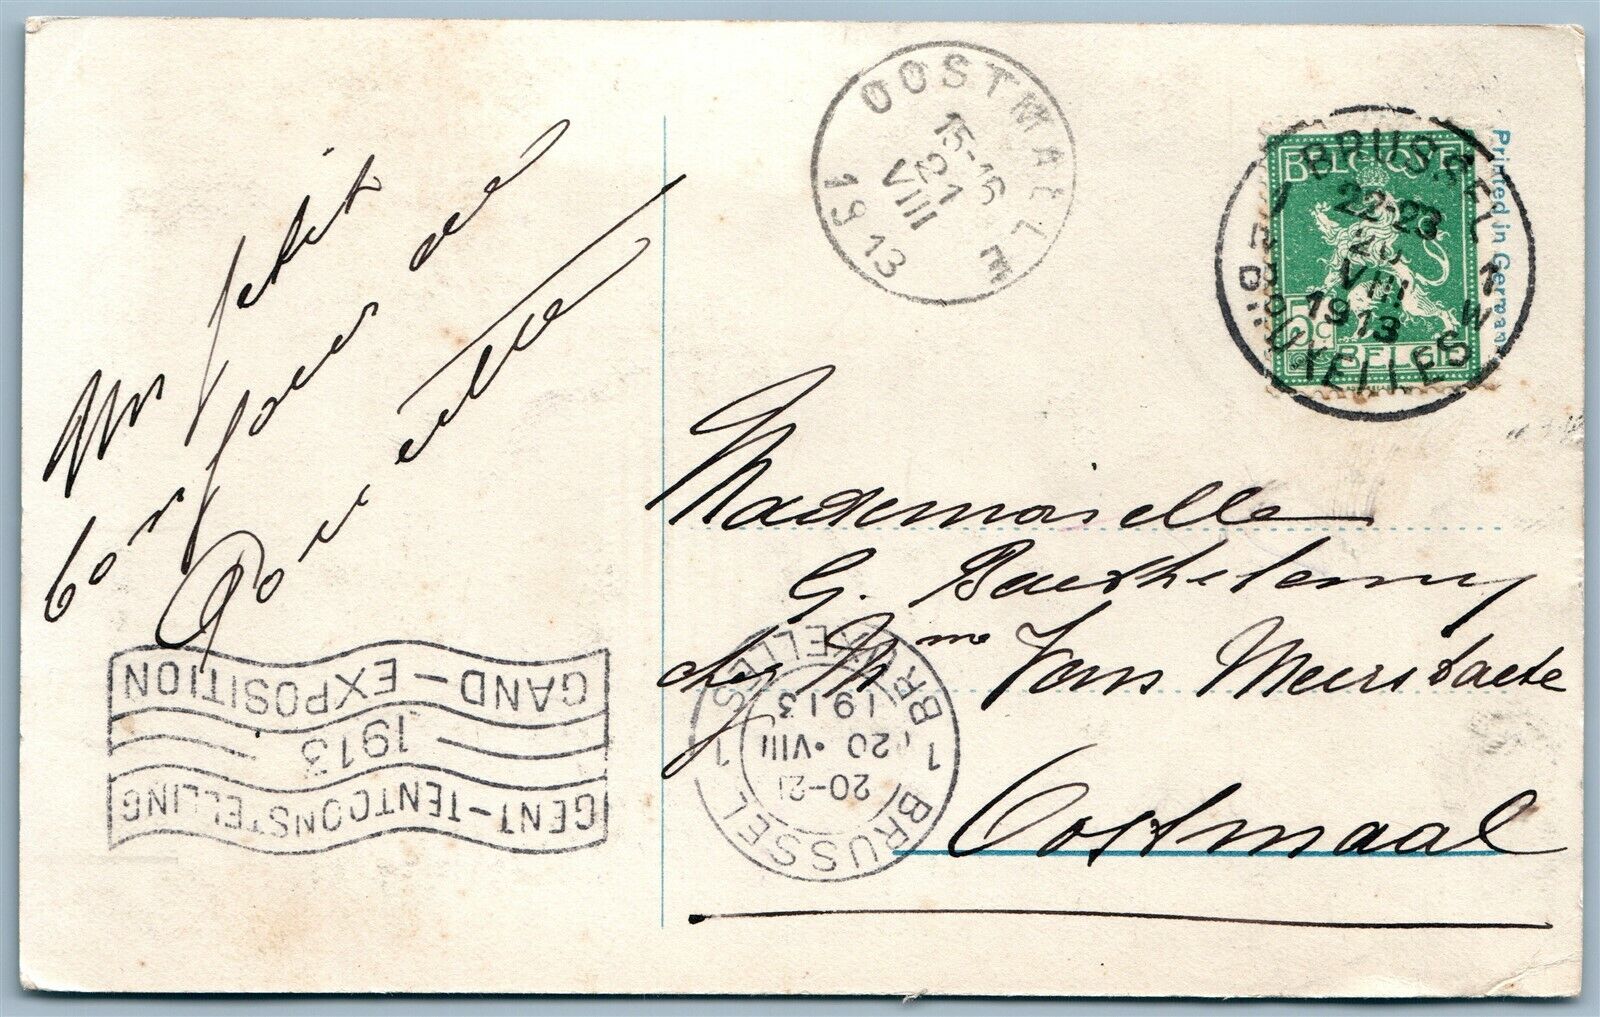 Un petit
bonjour de
OOSTMALLE
15-16
21
VIII
1913
BELGIQUE
5c
BELGIË
1 BRUSSEL 1
22-23
20
VIII
1913
BRUXELLES
Printed in Germany
Mademoiselle
G. Barthelemy
chez Mme Van Meerstaete
Oostmaal
GENT-TENTOONSTELLING
1913
GAND-EXPOSITION
1 BRUSSEL 1
20-21
20 • VIII
1913
BRUXELLES